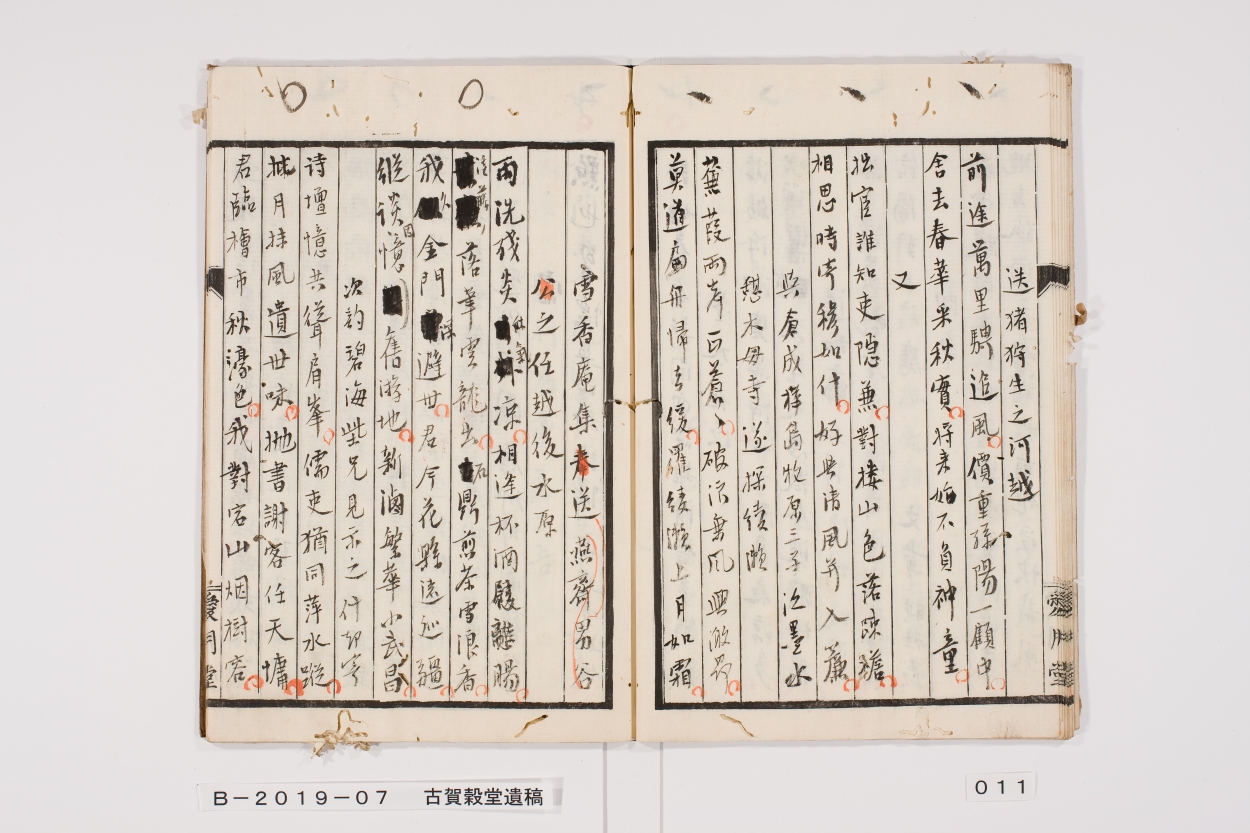 送猪狩生之河越
前途萬里騁追風價重孫陽一顧中
含去春華采秋實将来始不負神童
又
拙官誰知吏隠兼對樓山色落疎襜
相思時寄穆如什好與清風并入簾
與倉成樺島牧原三子泛墨水
憩木母寺遂探綾瀬
蒹葭両岸正蒼々破浪乗風興激昂
莫道扁舟帰去緩羅綾瀬上月如霜
雪香庵集送燕齋男谷
公之任越後水原
雨洗残炎秋氣凉相逢杯酒緩離腸
落筆雲龍出石鼎煎茶雪浪香
我金門深避世君今花縣遠巡疆
縦談因憶舊游地新潟繁華小武昌
次韵碧海埜兄見示之什却寄
诗壇憶共聳肩峯儒吏猶同萍水蹤
抹月抹風遺世味抛書謝客任天慵
君臨檜市秋濠色我對宕山烟樹容
愛月堂
愛月堂
Ｂ－２０１９－０７　古賀穀堂遺稿
０１１